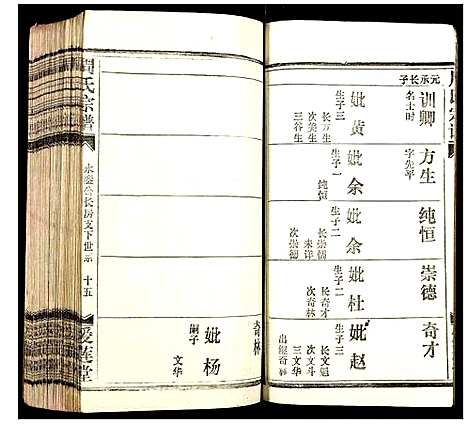 元承长子
训卿
名士时
妣黄
生子三
长方生
次美生
三谷生
方生
字先平
妣余
生子一
纯恒
纯恒
妣余
生子二
长崇儒
未详
次崇德
崇德
妣杜
生子二
长奇才
次奇林
奇才
妣赵
生子三
长文魁
次文斗
三文华
出继奇林
奇林
妣杨
嗣子
文华
周氏宗谱
永泰公长房支下世系
十五
爱莲堂